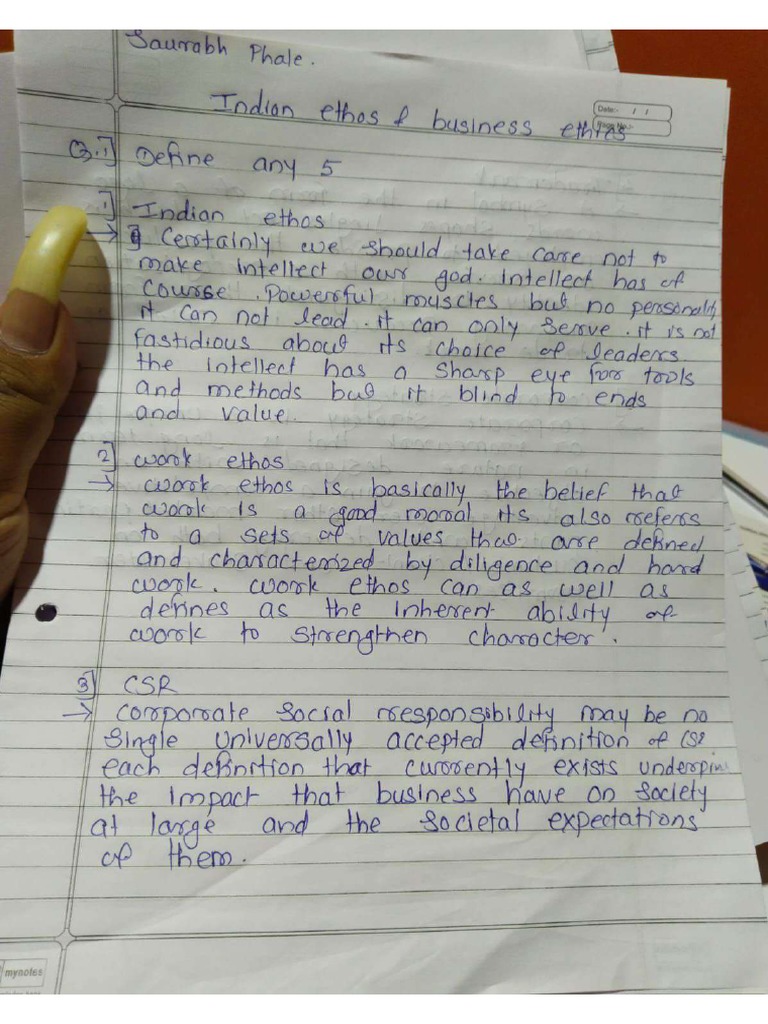 Saurabh Phale.
Indian ethos & business ethics
Date:- / /
Page No.:-
Q.1] Define any 5
1] Indian ethos
→ Certainly we should take care not to
make intellect our god. intellect has of
course. Powerful muscles but no personality
it can not lead. it can only serve. it is not
fastidious about its choice of leaders.
the intellect has a sharp eye for tools
and methods but it blind to ends
and value.
2] work ethos
→ work ethos is basically the belief that
work is a good moral its also refers
to a sets of values that are defined
and characterized by diligence and hard
work. work ethos can as well as
defines as the inherent ability of
work to strengthen character.
3] CSR
→ corporate social responsibility may be no
single universally accepted definition of CSR
each definition that currently exists underpins
the impact that business have on society
at large and the societal expectations
of them.
mynotes